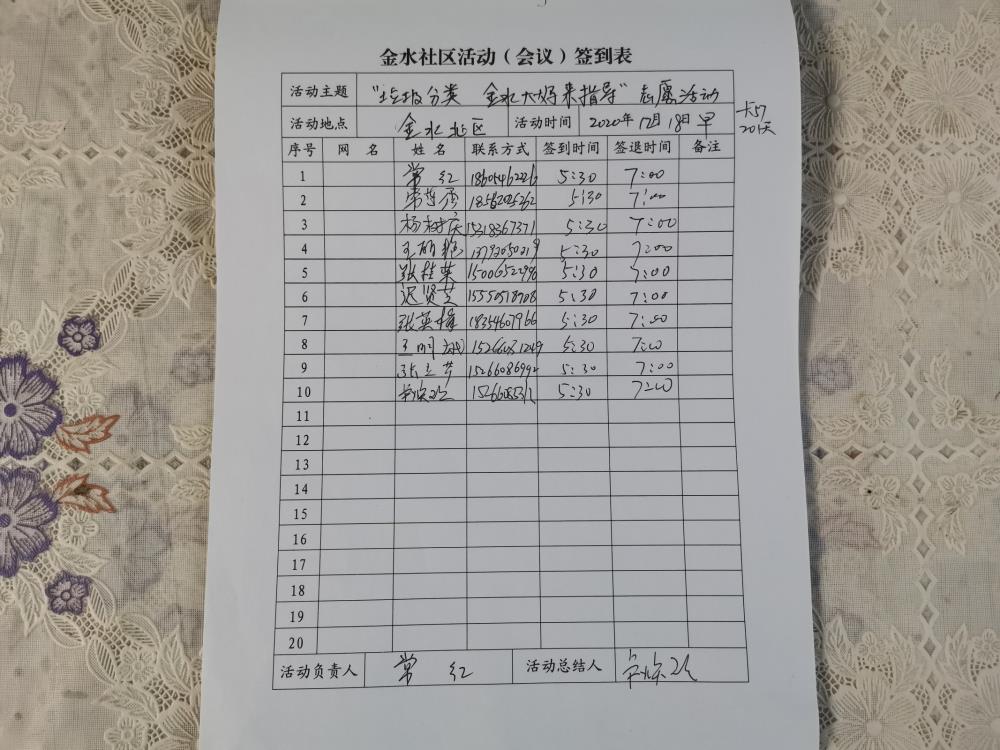 金水社区活动（会议）签到表
活动主题 "垃圾分类 金水大妈来指导"志愿活动
活动地点 金水社区 活动时间 2020年12月18日早
201天
序号 网名 姓名 联系方式 签到时间 签退时间 备注
1 常红 18605462226 5:30 7:00
2 5:30 7:00
3 杨树庆 15318367371 5:30 7:00
4 13792050219 5:30 7:00
5 张桂荣 15006522998 5:30 7:00
6 迟贤芝 15550518908 5:30 7:00
7 张英梅 18354607966 5:30 7:00
8 15266081249 5:30 7:00
9 15266086992 5:30 7:00
10 5:30 7:00
11
12
13
14
15
16
17
18
19
20
活动负责人 常红 活动总结人